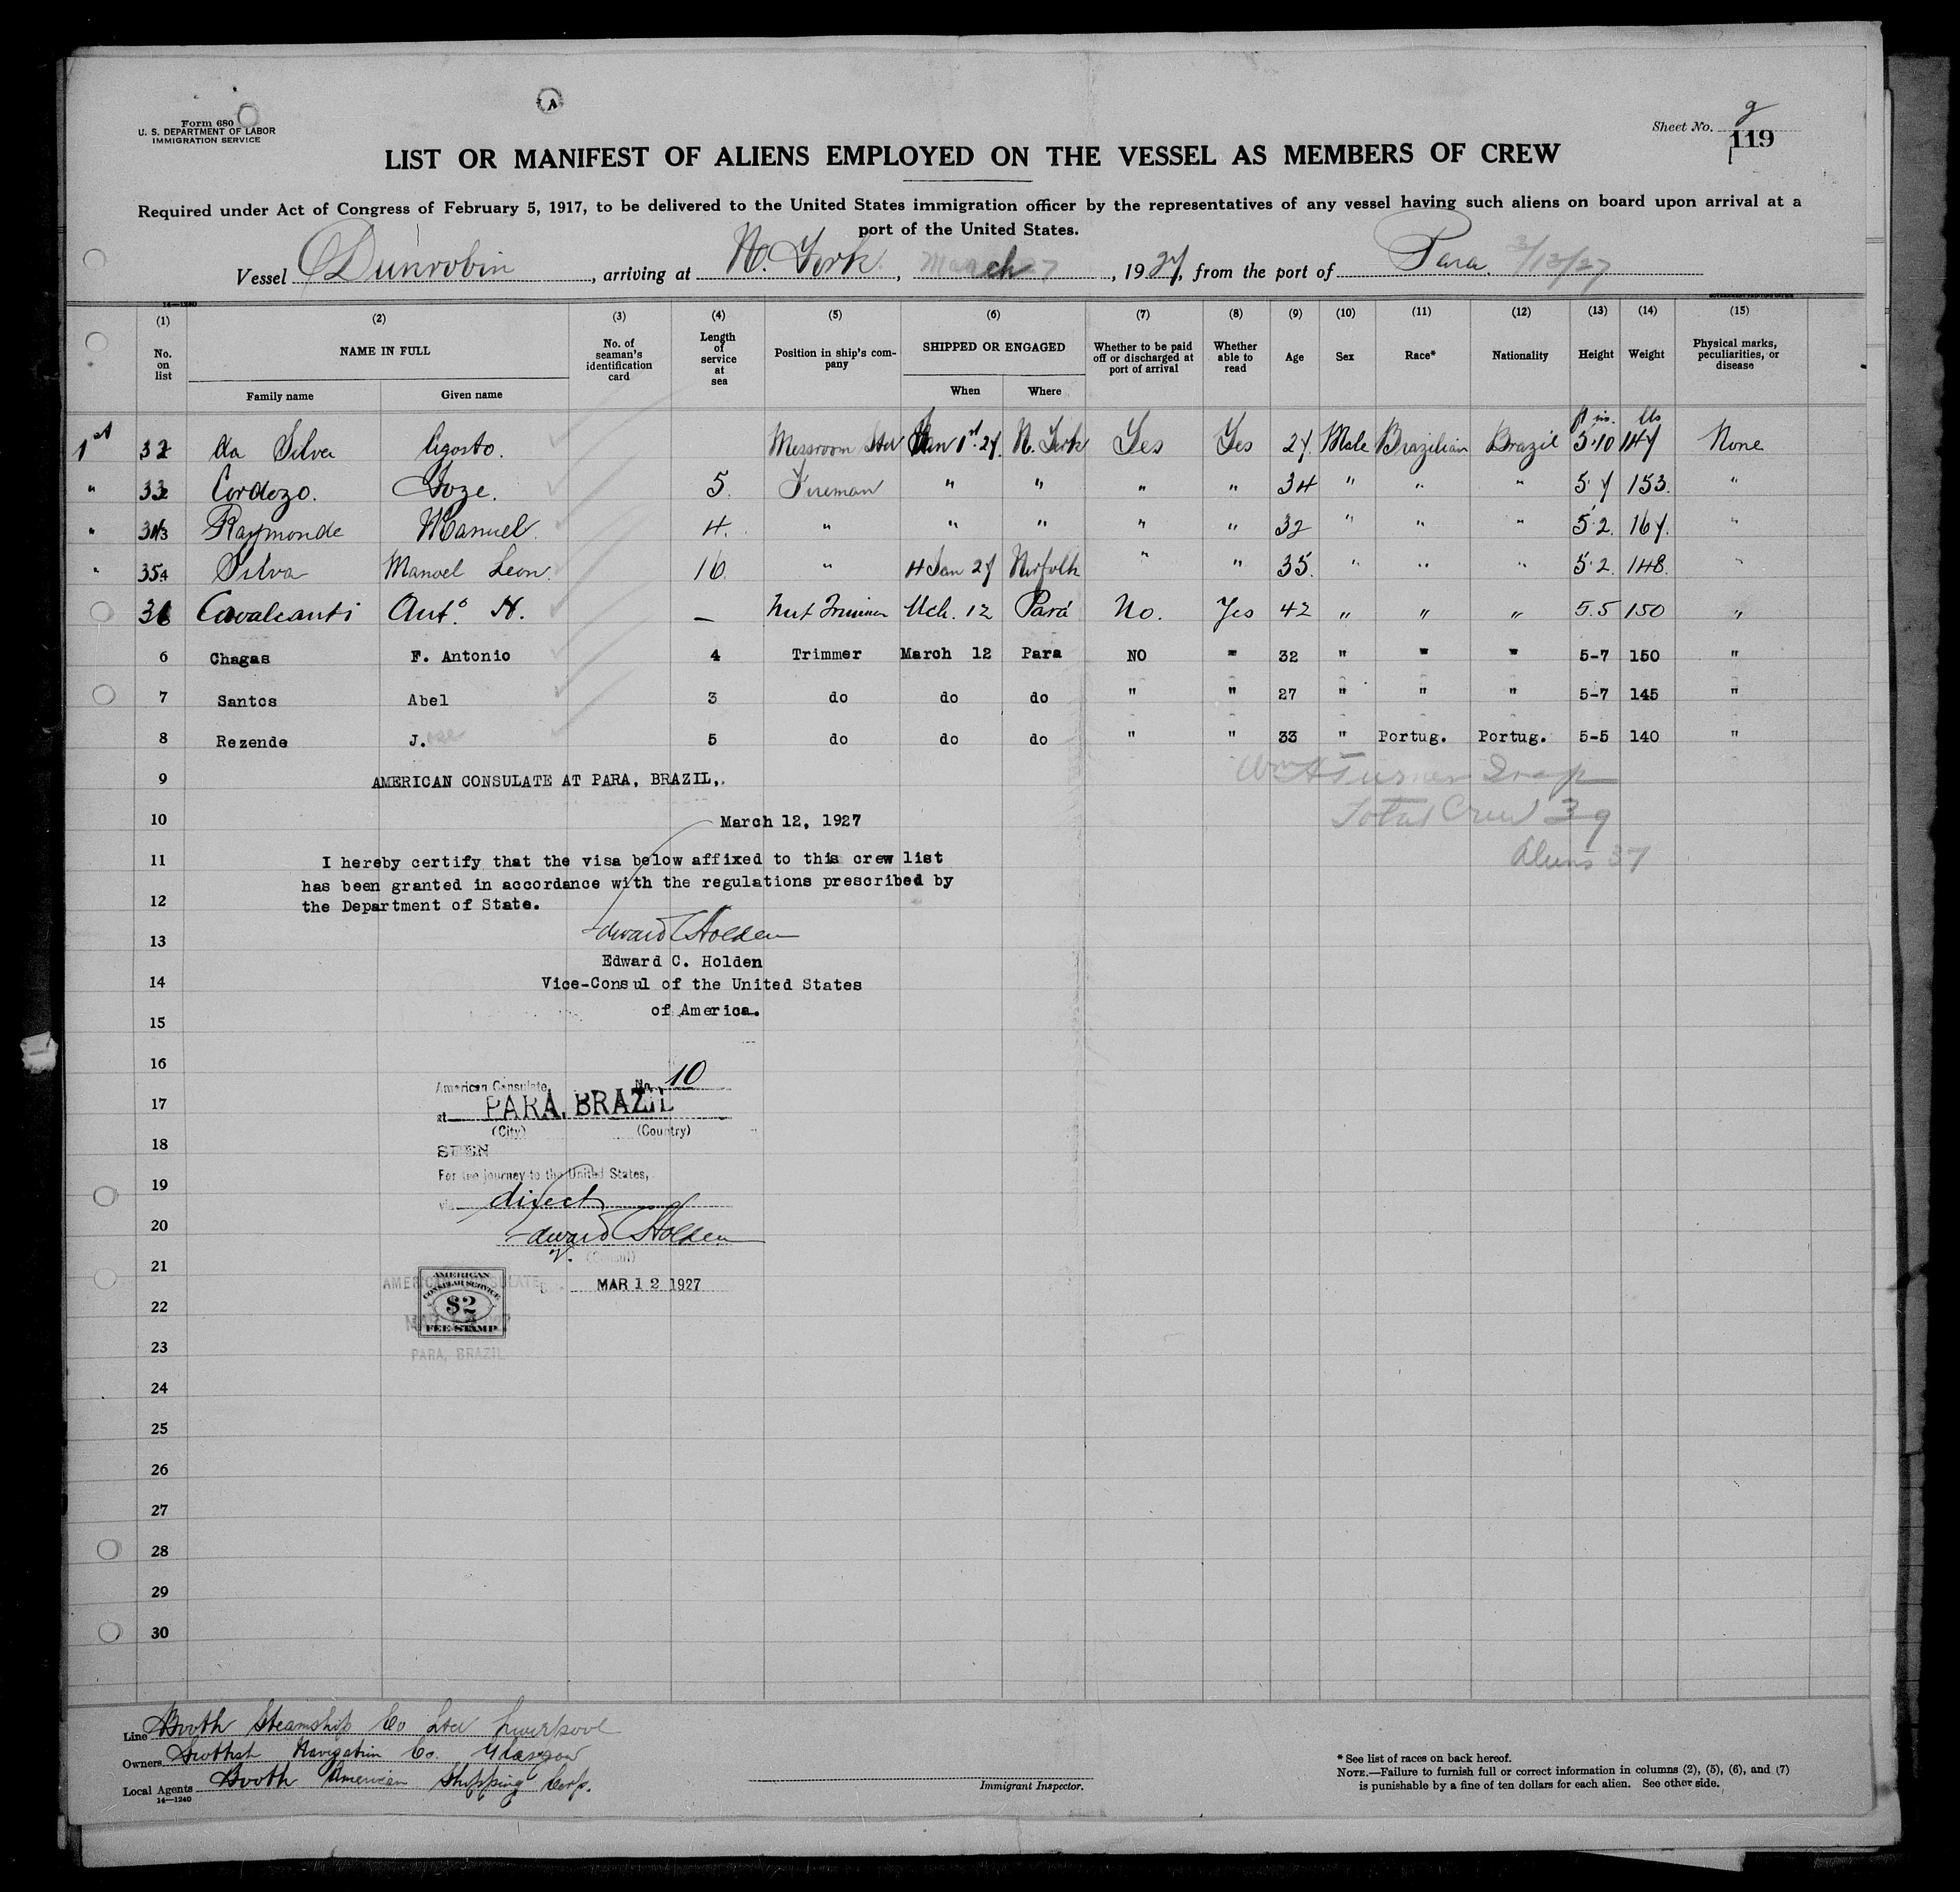 A
Form 680
U. S. DEPARTMENT OF LABOR
IMMIGRATION SERVICE
Sheet No. 2
119
LIST OR MANIFEST OF ALIENS EMPLOYED ON THE VESSEL AS MEMBERS OF CREW
Required under Act of Congress of February 5, 1917, to be delivered to the United States immigration officer by the representatives of any vessel having such aliens on board upon arrival at a
port of the United States.
Vessel Dunrobin, arriving at N. York, March 27, 1927, from the port of Para. 3/13/27
14—1240 GOVERNMENT PRINTING OFFICE
(1) (2) (3) (4) (5) (6) (7) (8) (9) (10) (11) (12) (13) (14) (15)
No. on list NAME IN FULL No. of seaman's identification card Length of service at sea Position in ship's company SHIPPED OR ENGAGED Whether to be paid off or discharged at port of arrival Whether able to read Age Sex Race* Nationality Height Weight Physical marks, peculiarities, or disease
Family name Given name When Where
ft ins. lbs
1st 32 da Silva Agosto. Messroom Std Jan 1st 27. N. York Yes Yes 27. Male Brazilian Brazil 5·10 147 None
" 33 Cordozo. Joze. 5. Fireman " " " " 34 " " " 5·7 153. "
" 34 Raymonde Manuel. 4. " " " " " 32 " " " 5·2. 167. "
" 35 Silva Manoel Leon. 16. " 4 Jan 27 Norfolk " " 35. " " " 5·2. 148. "
36 Cavalcanti Anto. H. — Mch. 12 Pará No. Yes 42 " " " 5.5 150 "
6 Chagas F. Antonio 4 Trimmer March 12 Para NO " 32 " " " 5-7 150 "
7 Santos Abel 3 do do do " " 27 " " " 5-7 145 "
8 Rezende J.ose 5 do do do " " 33 " Portug. Portug. 5-5 140 "
Wm A Turner Insp
9 AMERICAN CONSULATE AT PARA, BRAZIL,.
Total Crew 39
10 March 12, 1927
Aliens 37
11 I hereby certify that the visa below affixed to this crew list
has been granted in accordance with the regulations prescribed by
12 the Department of State.
13 Edward C Holden
Edward C. Holden
14 Vice-Consul of the United States
of America.
15
16 American Consulate No. 10
17 at PARA, BRAZIL
(City) (Country)
18 SEEN
For the journey to the United States,
19 via direct
20 Edward C Holden
V. (Consul)
21 AMERICAN CONSULATE MAR 12 1927
AMERICAN
CONSULAR SERVICE
22 $2
FEE STAMP
23 PARA, BRAZIL
24
25
26
27
28
29
30
Line Booth Steamship Co Ltd Liverpool
Owners Scottish Navigation Co. Glasgow
Local Agents Booth American Shipping Corp.
14—1240
Immigrant Inspector.
* See list of races on back hereof.
NOTE.—Failure to furnish full or correct information in columns (2), (5), (6), and (7)
is punishable by a fine of ten dollars for each alien. See other side.